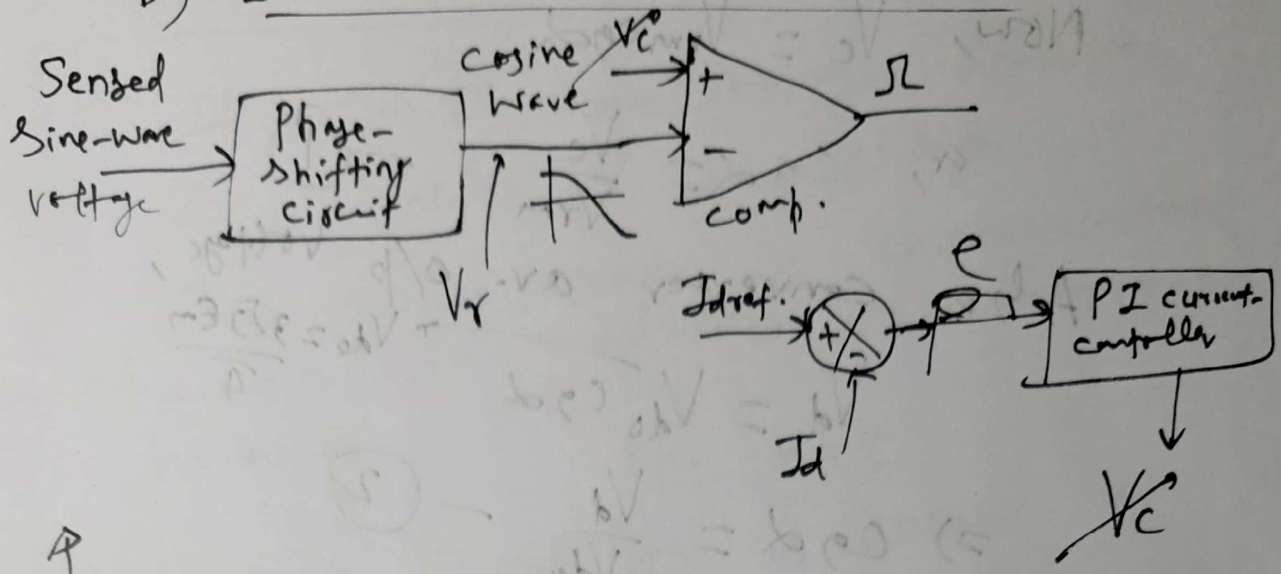 b)
Sensed
Sine-wave
voltage
Phase-
shifting
circuit
cosine
wave
Vc
+
-
comp.
Vr
Idref.
+
-
Id
e
PI current-
controller
Vc